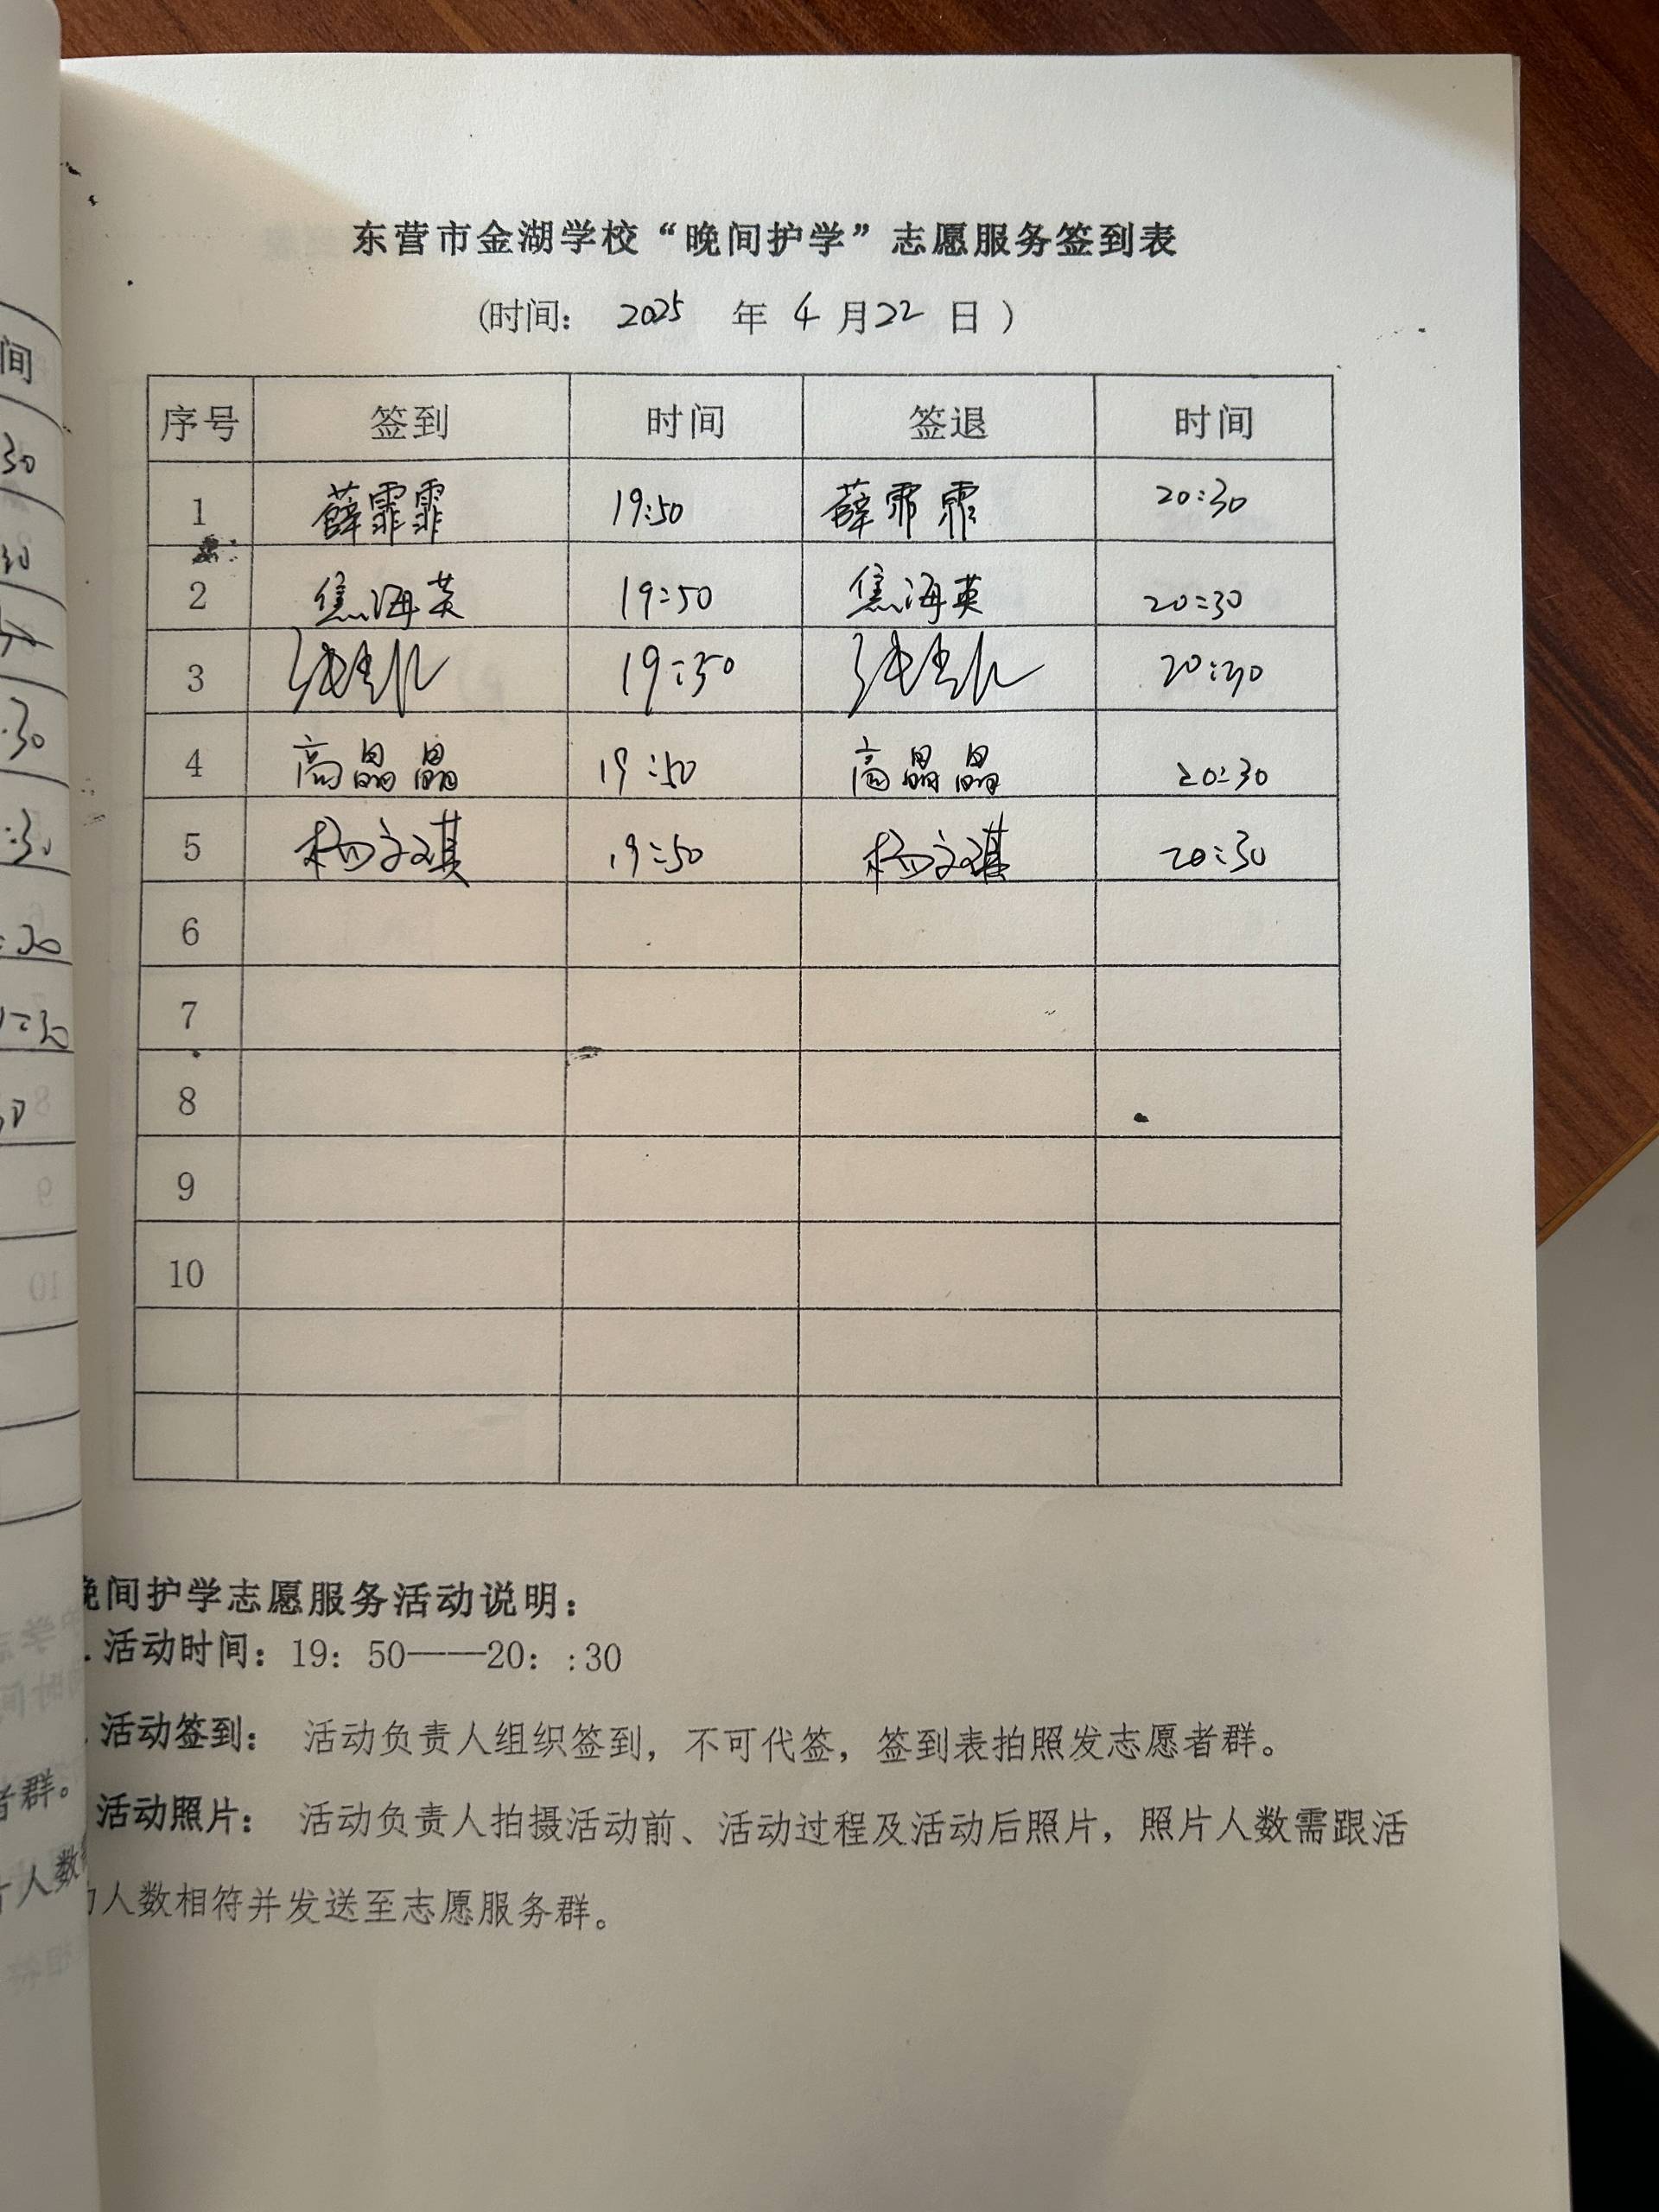 东营市金湖学校“晚间护学”志愿服务签到表
(时间： 2025 年 4 月 22 日 )
序号 签到 时间 签退 时间
1 薛霏霏 19:50 薛霏霏 20:30
2 焦海英 19:50 焦海英 20:30
3 19:50 20:30
4 高晶晶 19:50 高晶晶 20:30
5 杨文琪 19:50 杨文琪 20:30
6
7
8
9
10
晚间护学志愿服务活动说明：
. 活动时间：19：50——20：:30
. 活动签到： 活动负责人组织签到，不可代签，签到表拍照发志愿者群。
活动照片： 活动负责人拍摄活动前、活动过程及活动后照片，照片人数需跟活
人数相符并发送至志愿服务群。
间
30
30
:30
:30
:30
者群。
人数